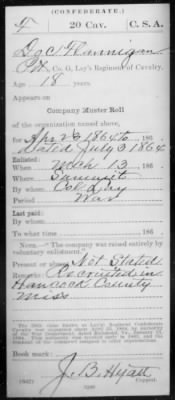 (CONFEDERATE.)
F 20 Cav. C. S. A.
Pvt, Co. G, Lay's Regiment of Cavalry.
Age 18 years.
Appears on
Company Muster Roll
of the organization named above,
for Apr 23 1864 to 186
dated July 3 1864
Enlisted:
When Mch 13 186
Where Summit
By whom Col. Lay
Period War
Last paid:
By whom
To what time 186
"The company was raised entirely by
voluntary enlistment."
Present or absent Not Stated
Remarks: Recruited in
Hancock County
Miss
Book mark:
J. B. Hyatt
Copyist.